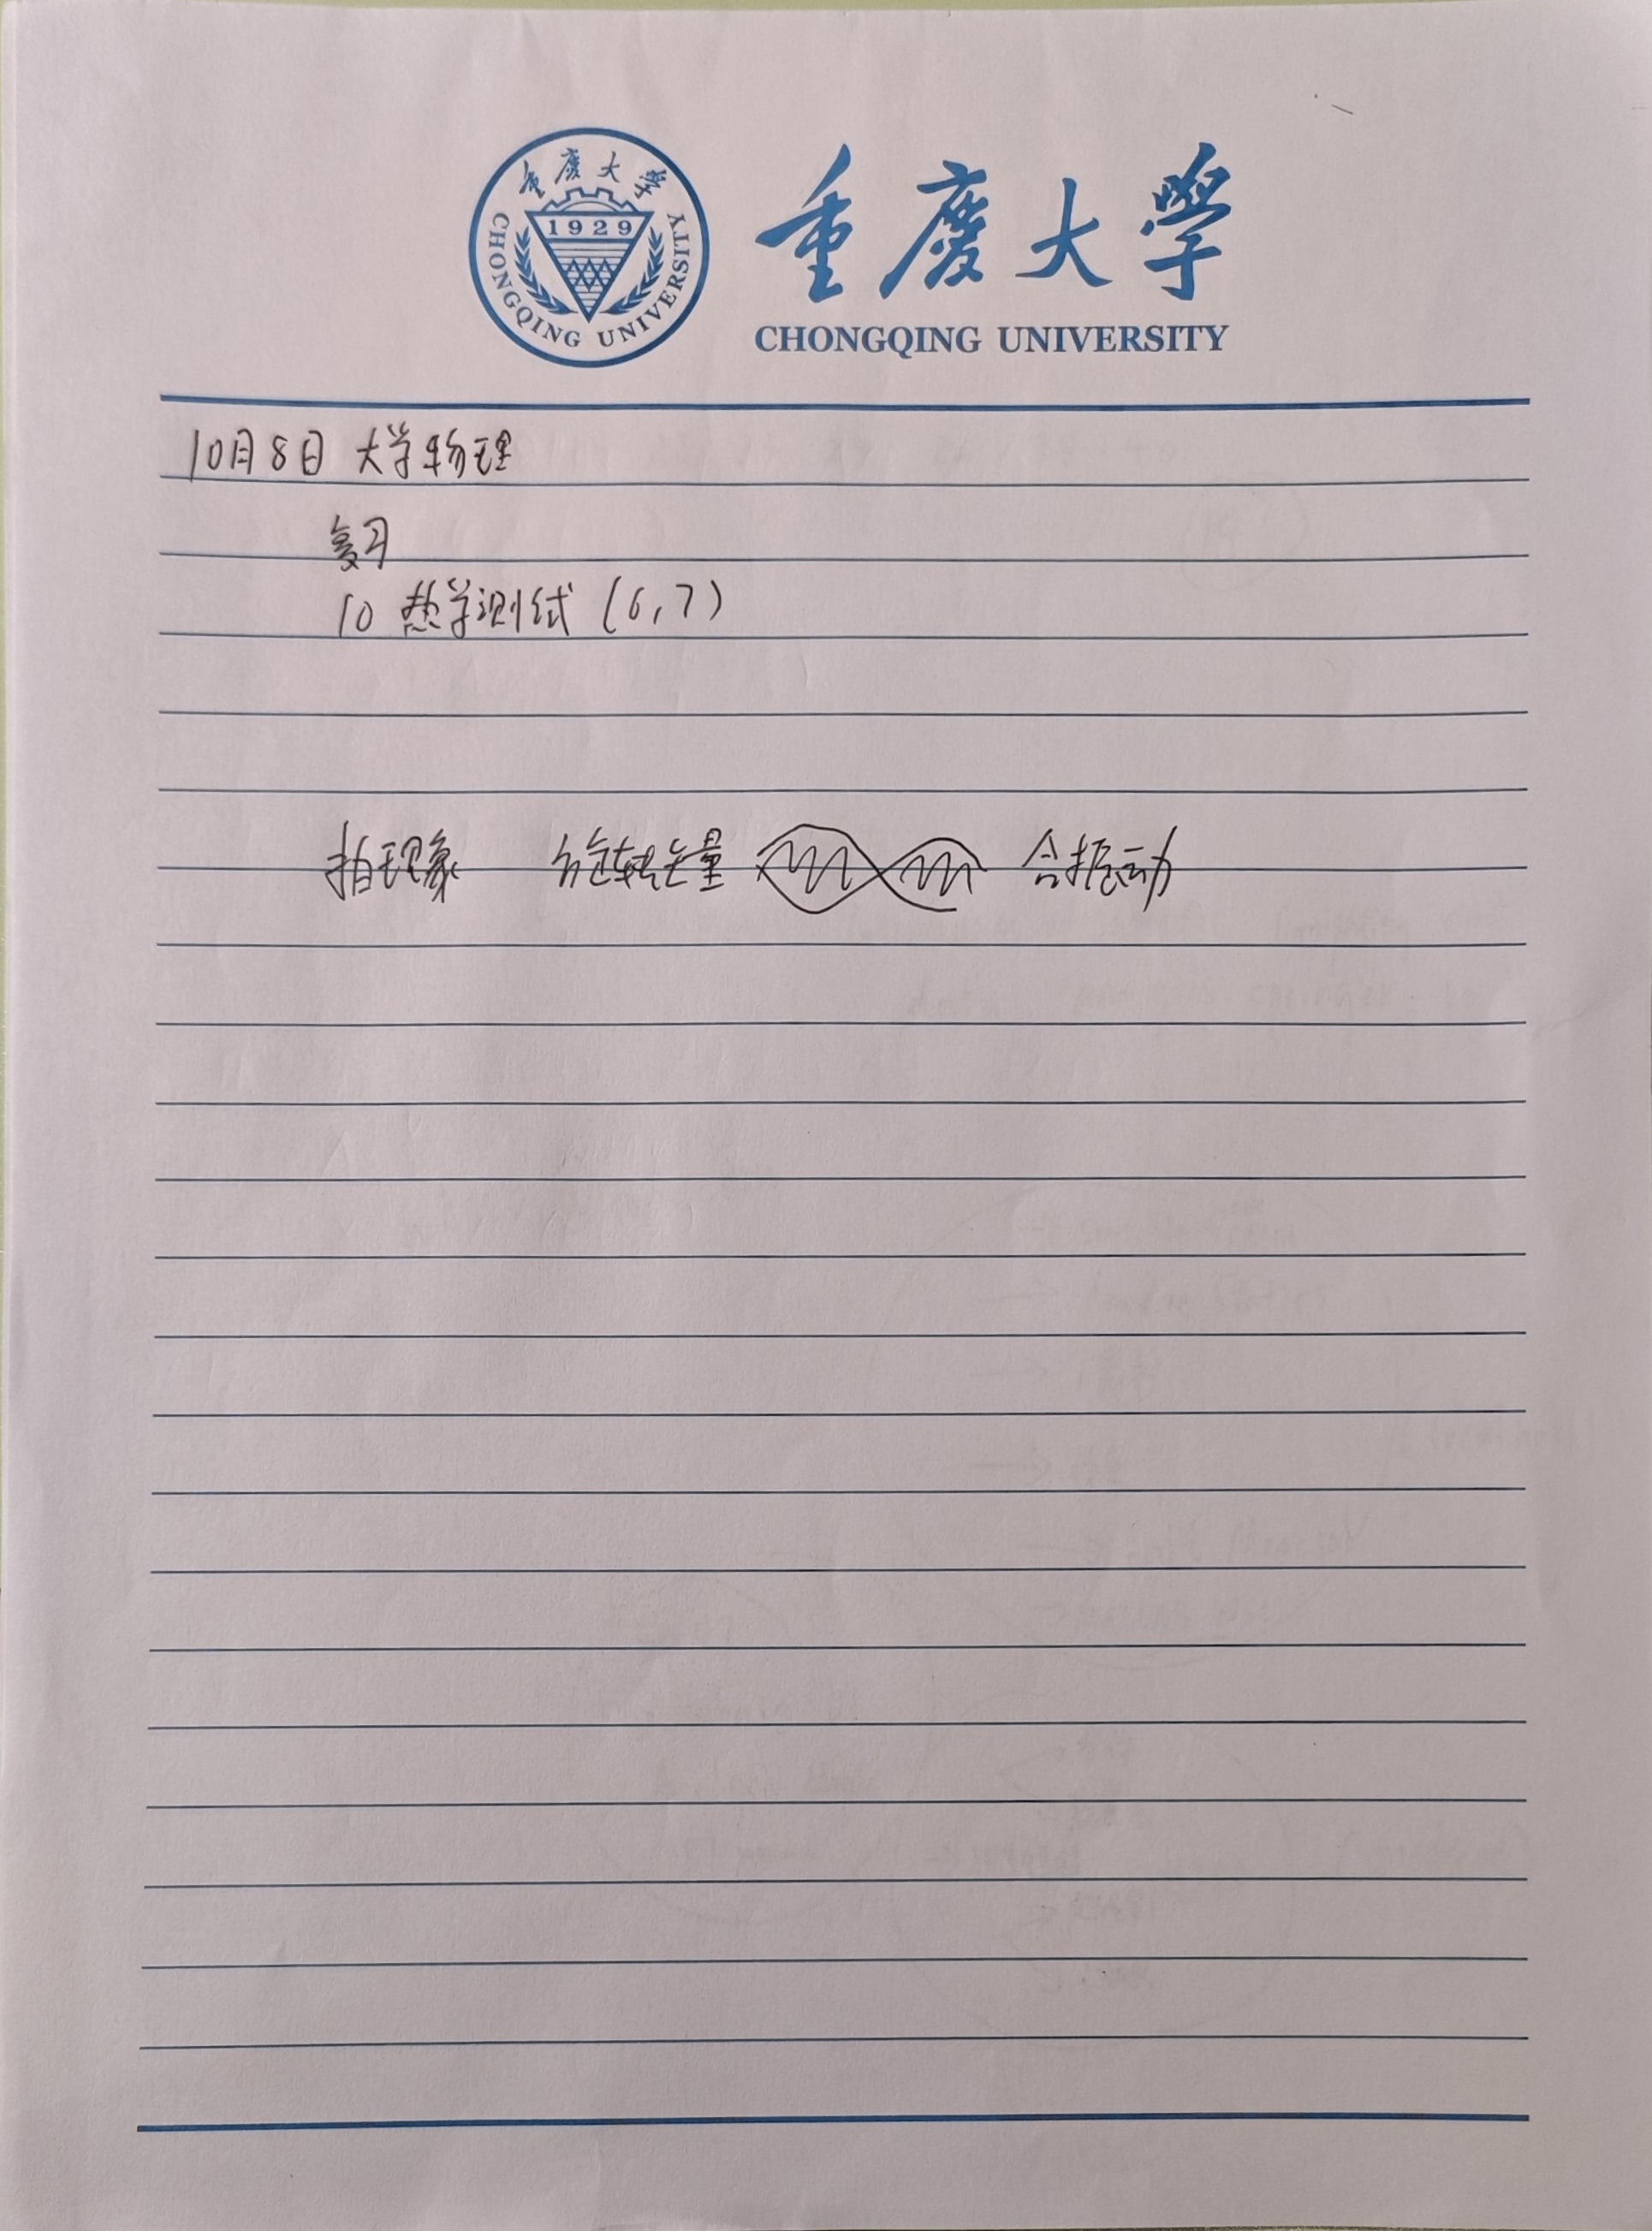 重庆大学
1929
CHONGQING UNIVERSITY
重慶大學
CHONGQING UNIVERSITY
10月8日 大学物理
复习
10 热学测试 (6,7)
拍现象 旋转矢量 合振动